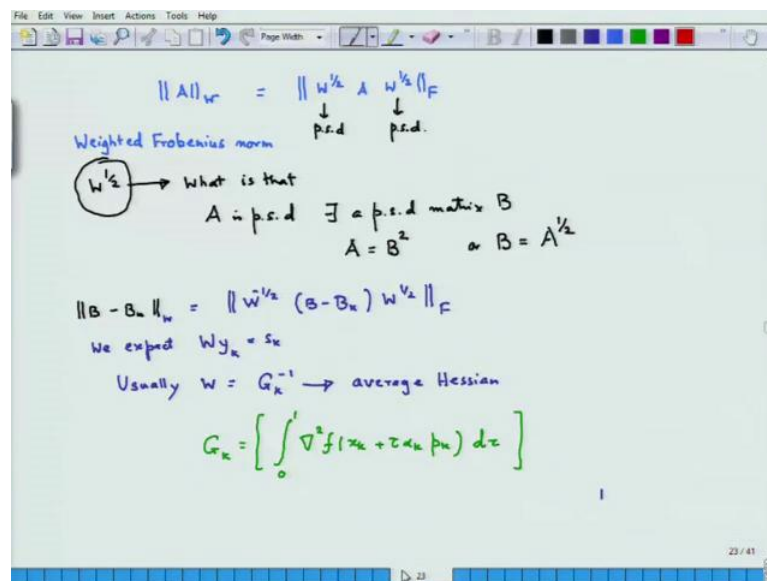 File Edit View Insert Actions Tools Help
Page Width
B I
|| A||_W = || W^{1/2} A W^{1/2} ||_F
↓ ↓
p.s.d p.s.d.
Weighted Frobenius norm
W^{1/2} → What is that
A is p.s.d ∃ a p.s.d matrix B
A = B^2 or B = A^{1/2}
||B - B_k||_W = || W^{-1/2} (B - B_k) W^{1/2} ||_F
We expect W y_k = s_k
Usually W = G_k^{-1} → average Hessian
G_k = [ ∫_0^1 ∇^2 f(x_k + τ α_k p_k) dτ ]
23 / 41
23